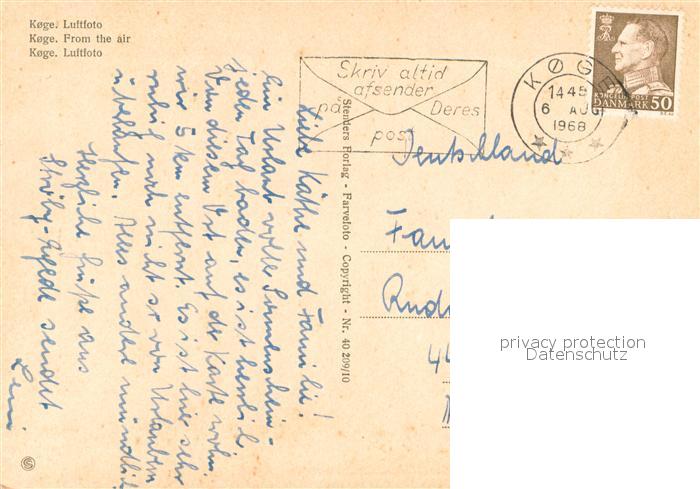 Køge. Luftfoto
Køge. From the air
Køge. Luftfoto
Skriv altid
afsender
på Deres
post
KØGE
1445
6 AUG
1968
KONGELIG POST
DANMARK 50
Stenders Forlag - Farvefoto - Copyright - Nr. 40 209/10
Liebe Käthe und Familie!
Ein Urlaub voller Sonnenschein -
jeden Tag baden, es ist herrlich
Von diesem Ort auf der Karte wohn.
wir 5 km entfernt. Es ist hier sehr
ruhig noch nicht so von Urlaubern
überlaufen. Alles andere mündlich
Herzliche Grüße aus
Ströby-Egede sendet
Leni
Deutschland
Fam
Rud
44
privacy protection
Datenschutz